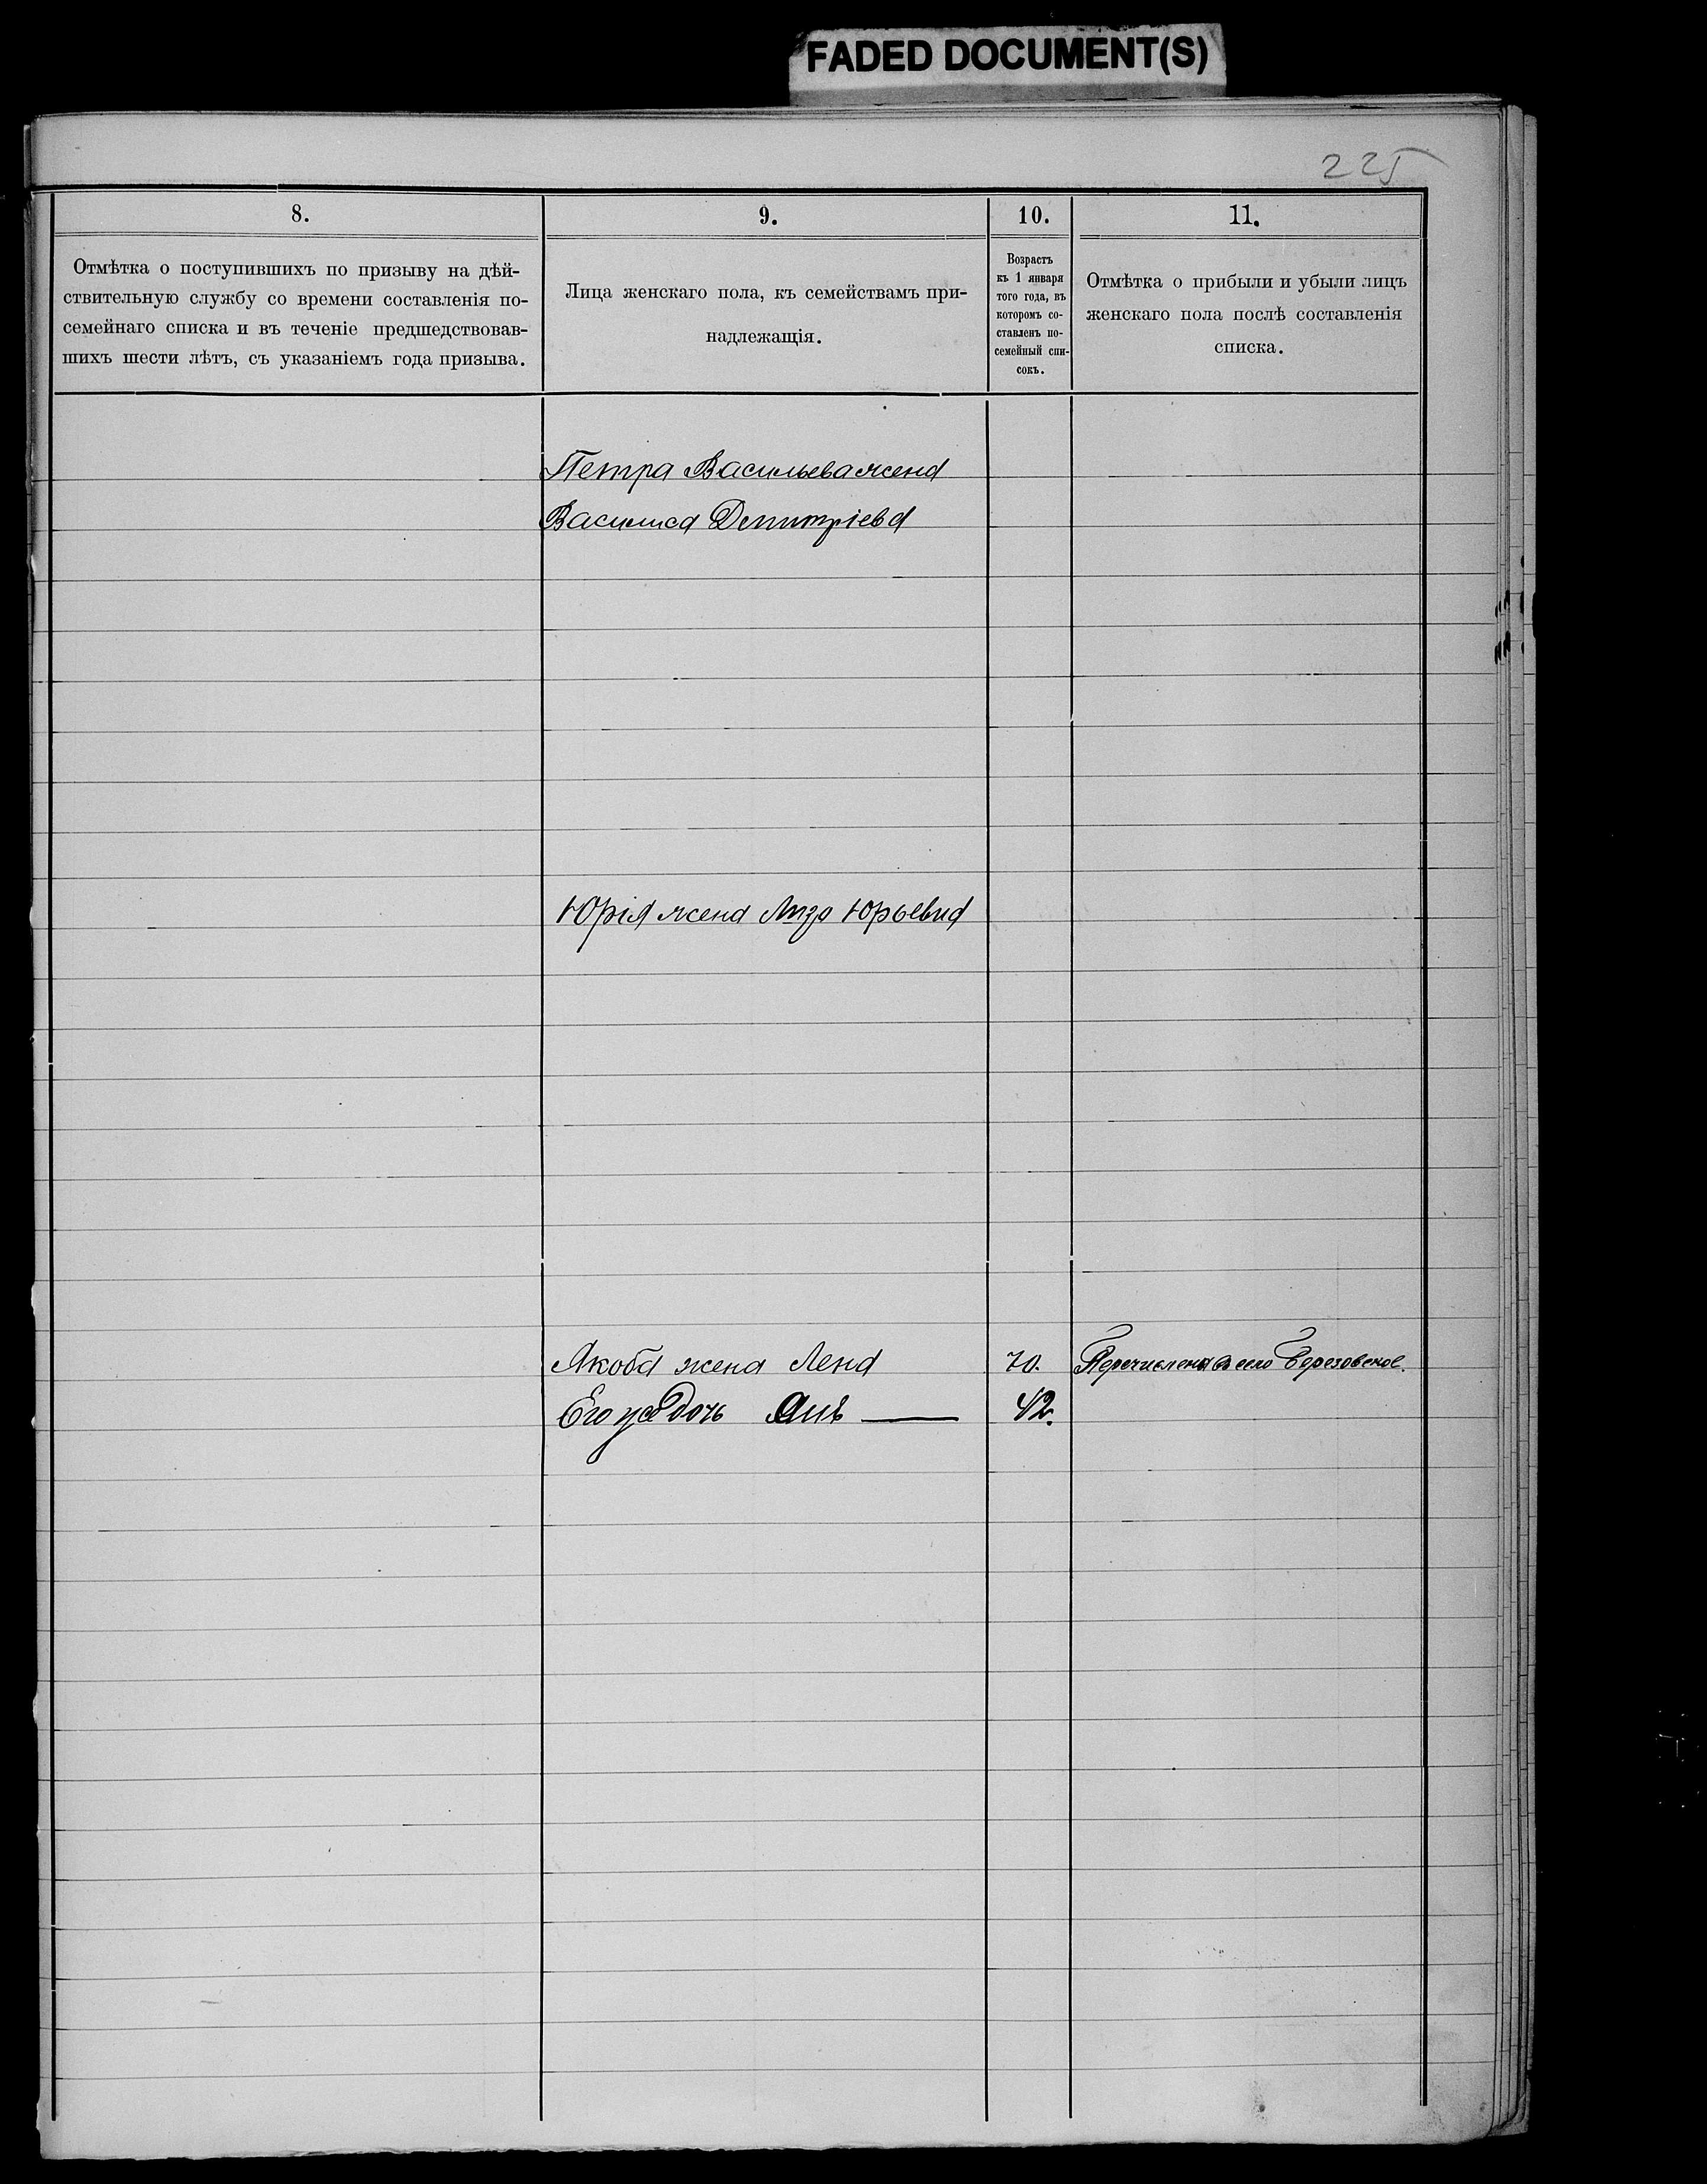 FADED DOCUMENT(S)
225
8.
9.
10.
11.
Отмѣтка о поступившихъ по призыву на дѣй-
ствительную службу со времени составленія по-
семейнаго списка и въ теченіе предшедствовав-
шихъ шести лѣтъ, съ указаніемъ года призыва.
Лица женскаго пола, къ семействамъ при-
надлежащія.
Возрастъ
къ 1 января
того года, въ
которомъ со-
ставленъ по-
семейный спи-
сокъ.
Отмѣтка о прибыли и убыли лицъ
женскаго пола послѣ составленія
списка.
Петра Васильева жена
Василиса Дмитріева
Юрія жена Лиза Юрьевна
Якоба жена Лена
70.
Перечислена в село Березовское.
Его дочь
42.